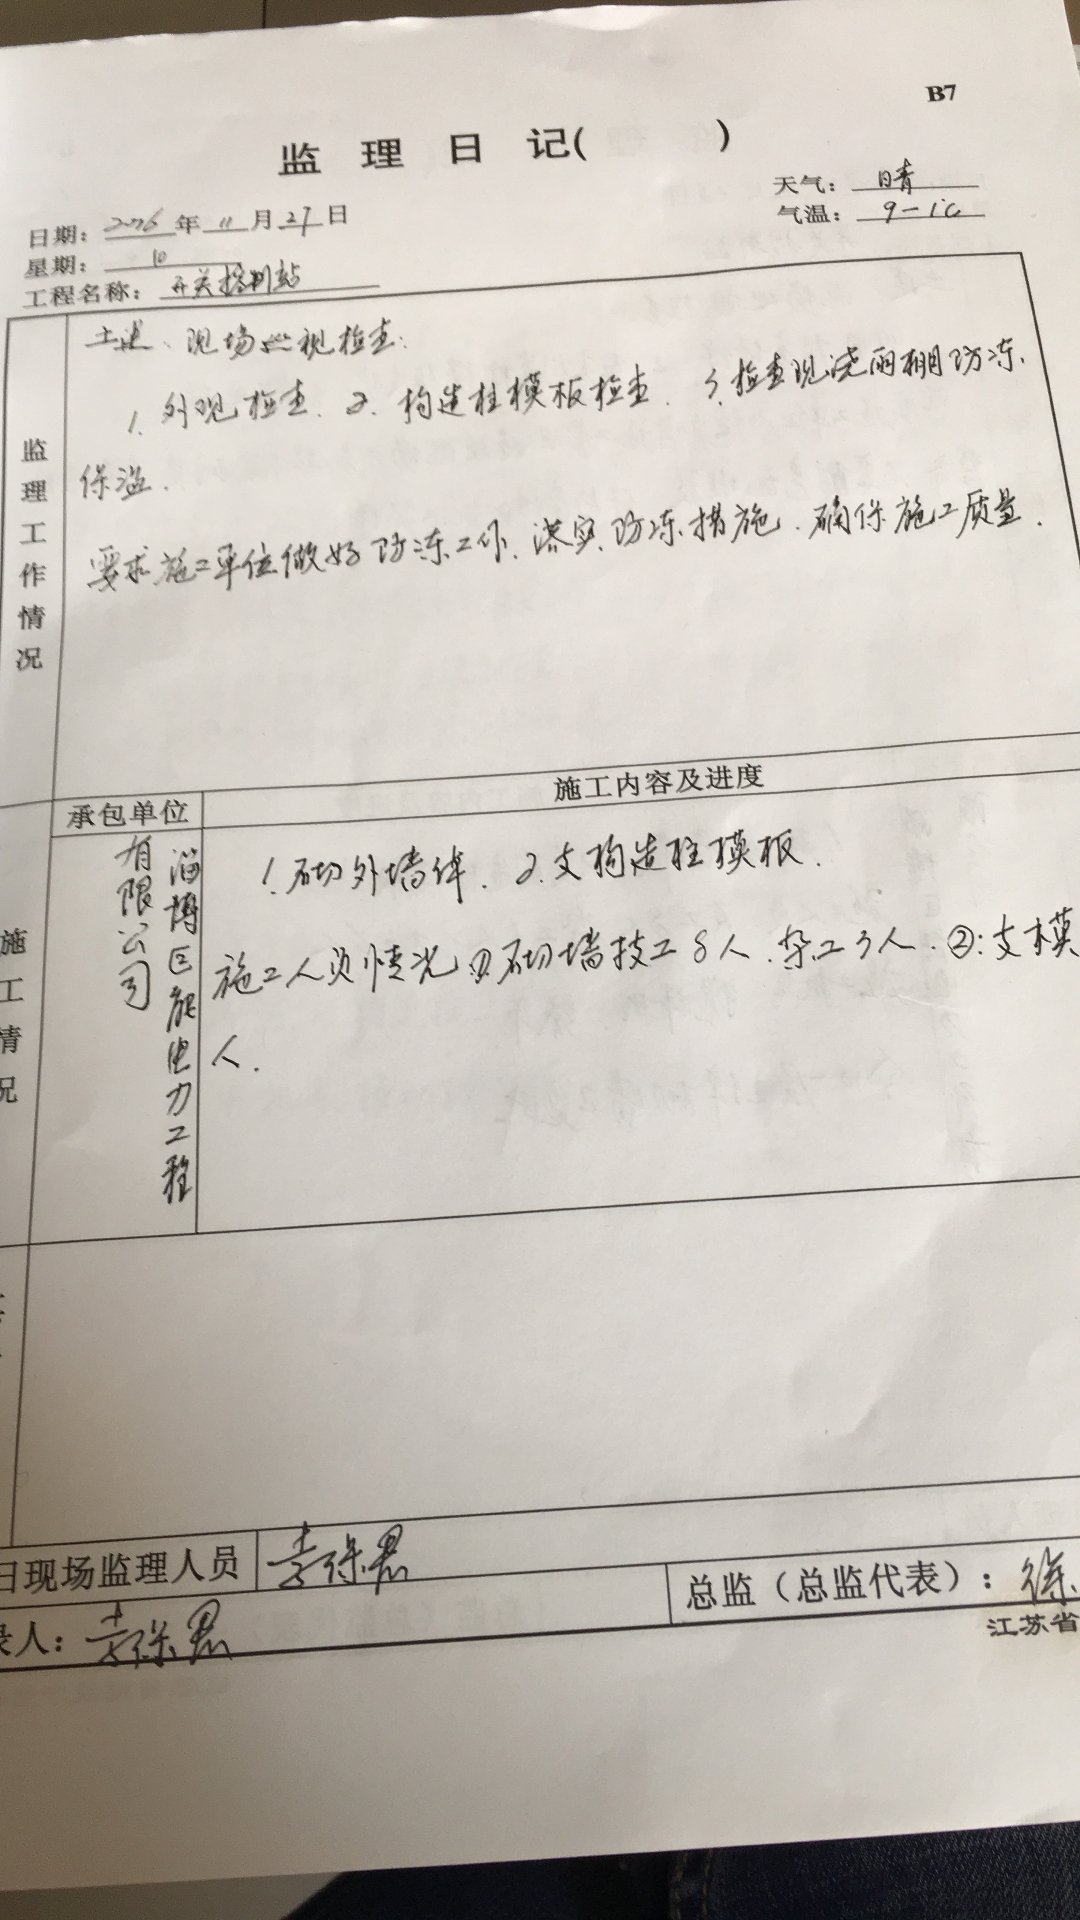 B7
监理日记( )
天气: 晴
日期: 2016 年 11 月 27 日
气温: 9-1℃
星期:
工程名称: 开关控制站
监理工作情况
土建、现场巡视检查:
1、外观检查、2、构造柱模板检查、3、检查现浇雨棚防冻、
保温.
要求施工单位做好防冻工作、落实防冻措施、确保施工质量.
承包单位
施工内容及进度
施工情况
淄博巨能电力工程
有限公司
1、砌外墙体、2、支构造柱模板.
施工人员情况①、砌墙技工8人、杂工3人.②:支模
人.
日现场监理人员
李保君
总监（总监代表）: 徐
录人: 李保君
江苏省